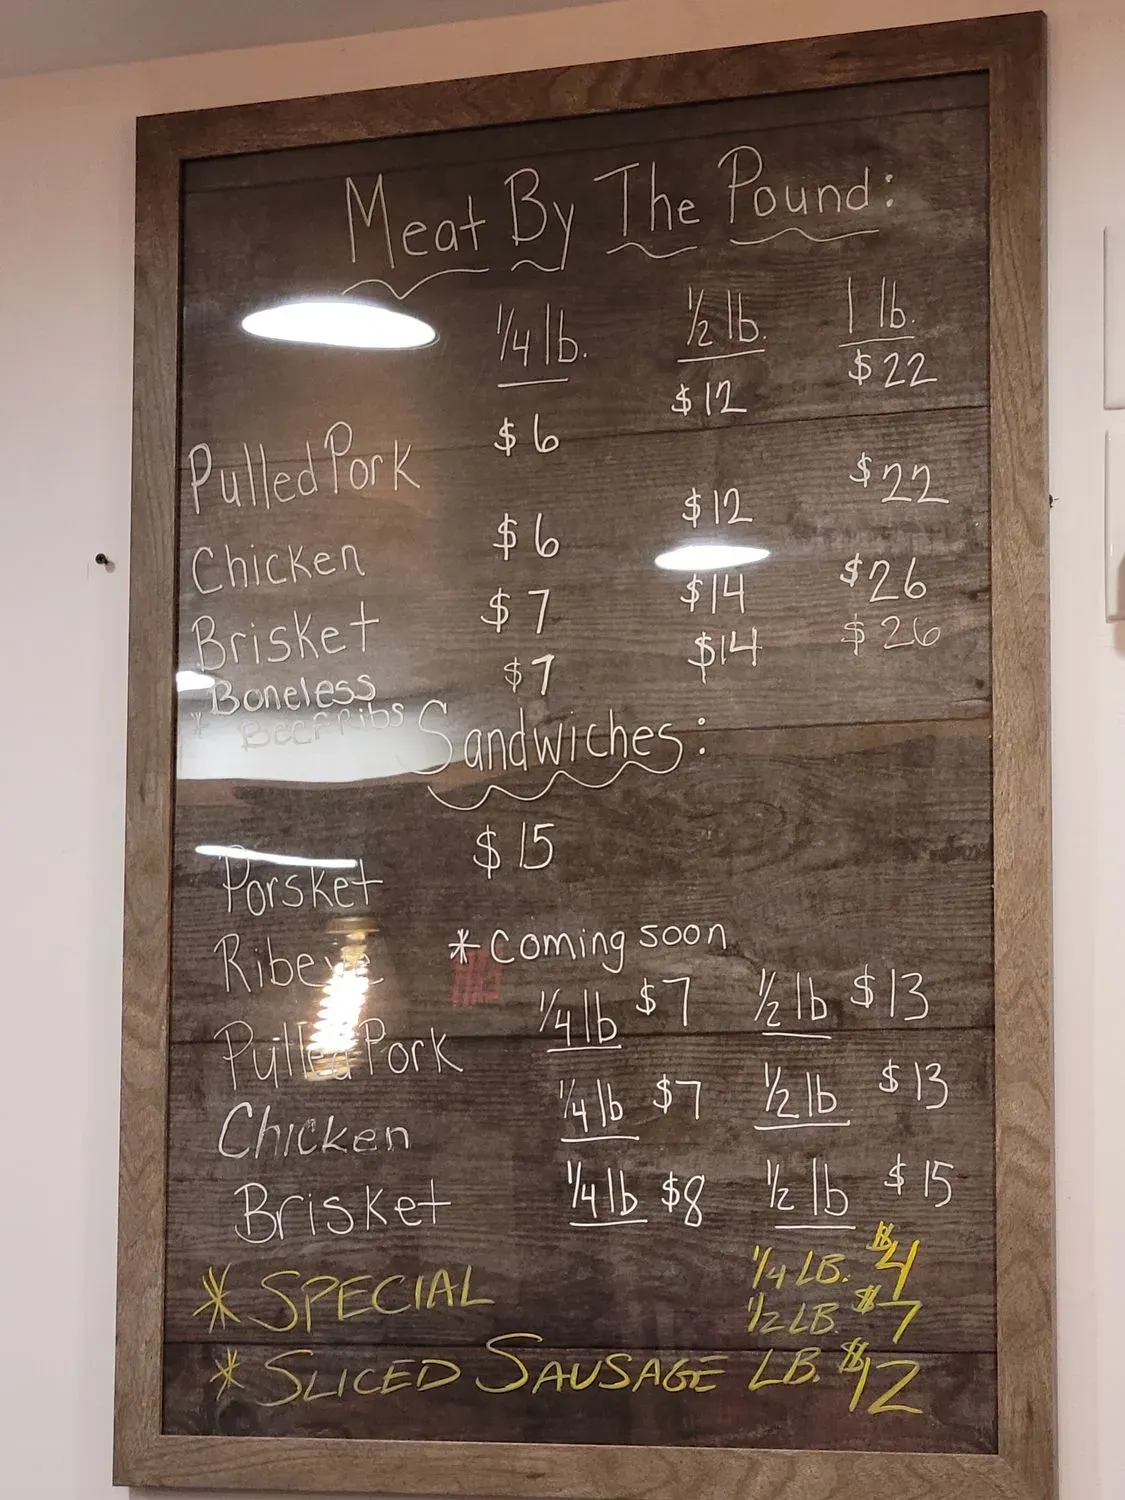 Meat By The Pound:
1/4 lb. 1/2 lb. 1 lb.
Pulled Pork $6 $12 $22
Chicken $6 $12 $22
Brisket $7 $14 $26
Boneless
* Beef Ribs $7 $14 $26
Sandwiches:
Porsket $15
Ribeye * Coming soon
Pulled Pork 1/4 lb $7 1/2 lb $13
Chicken 1/4 lb $7 1/2 lb $13
Brisket 1/4 lb $8 1/2 lb $15
* SPECIAL 1/4 LB. $4
1/2 LB $7
* SLICED SAUSAGE LB. $12